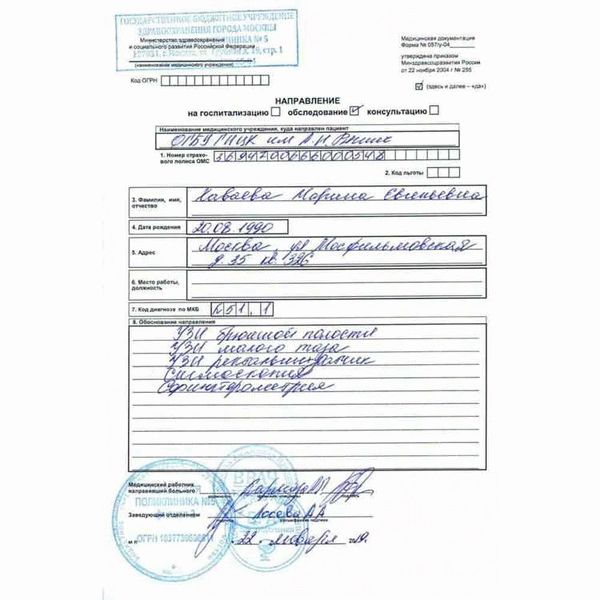 ГОСУДАРСТВЕННОЕ БЮДЖЕТНОЕ УЧРЕЖДЕНИЕ
ЗДРАВООХРАНЕНИЯ ГОРОДА МОСКВЫ
Министерство здравоохранения
и социального развития Российской Федерации
(наименование медицинского учреждения)
Медицинская документация
Форма № 057/у-04
утверждена приказом
Минздравсоцразвития России
от 22 ноября 2004 г № 255
Код ОГРН
(здесь и далее – «да»)
НАПРАВЛЕНИЕ
на госпитализацию обследование консультацию
Наименование медицинского учреждения, куда направлен пациент
им
1. Номер страхо-
вого полиса ОМС
2. Код льготы
3. Фамилия, имя,
отчество
Марина Евгеньевна
4. Дата рождения 20.08.1990
5. Адрес
Москва, ул Мосфильмовская
д. 35 кв. 326
6. Место работы,
должность
7. Код диагноза по МКБ K51.1
8. Обоснование направления
УЗИ брюшной полости
УЗИ малого таза
УЗИ датчик
Сфинктерометрия
Медицинский работник
направивший больного
Заведующий отделением
Лосева АА
расшифровка подписи
М.П.
22 января
ПОЛИКЛИНИКА №5
ВРАЧ